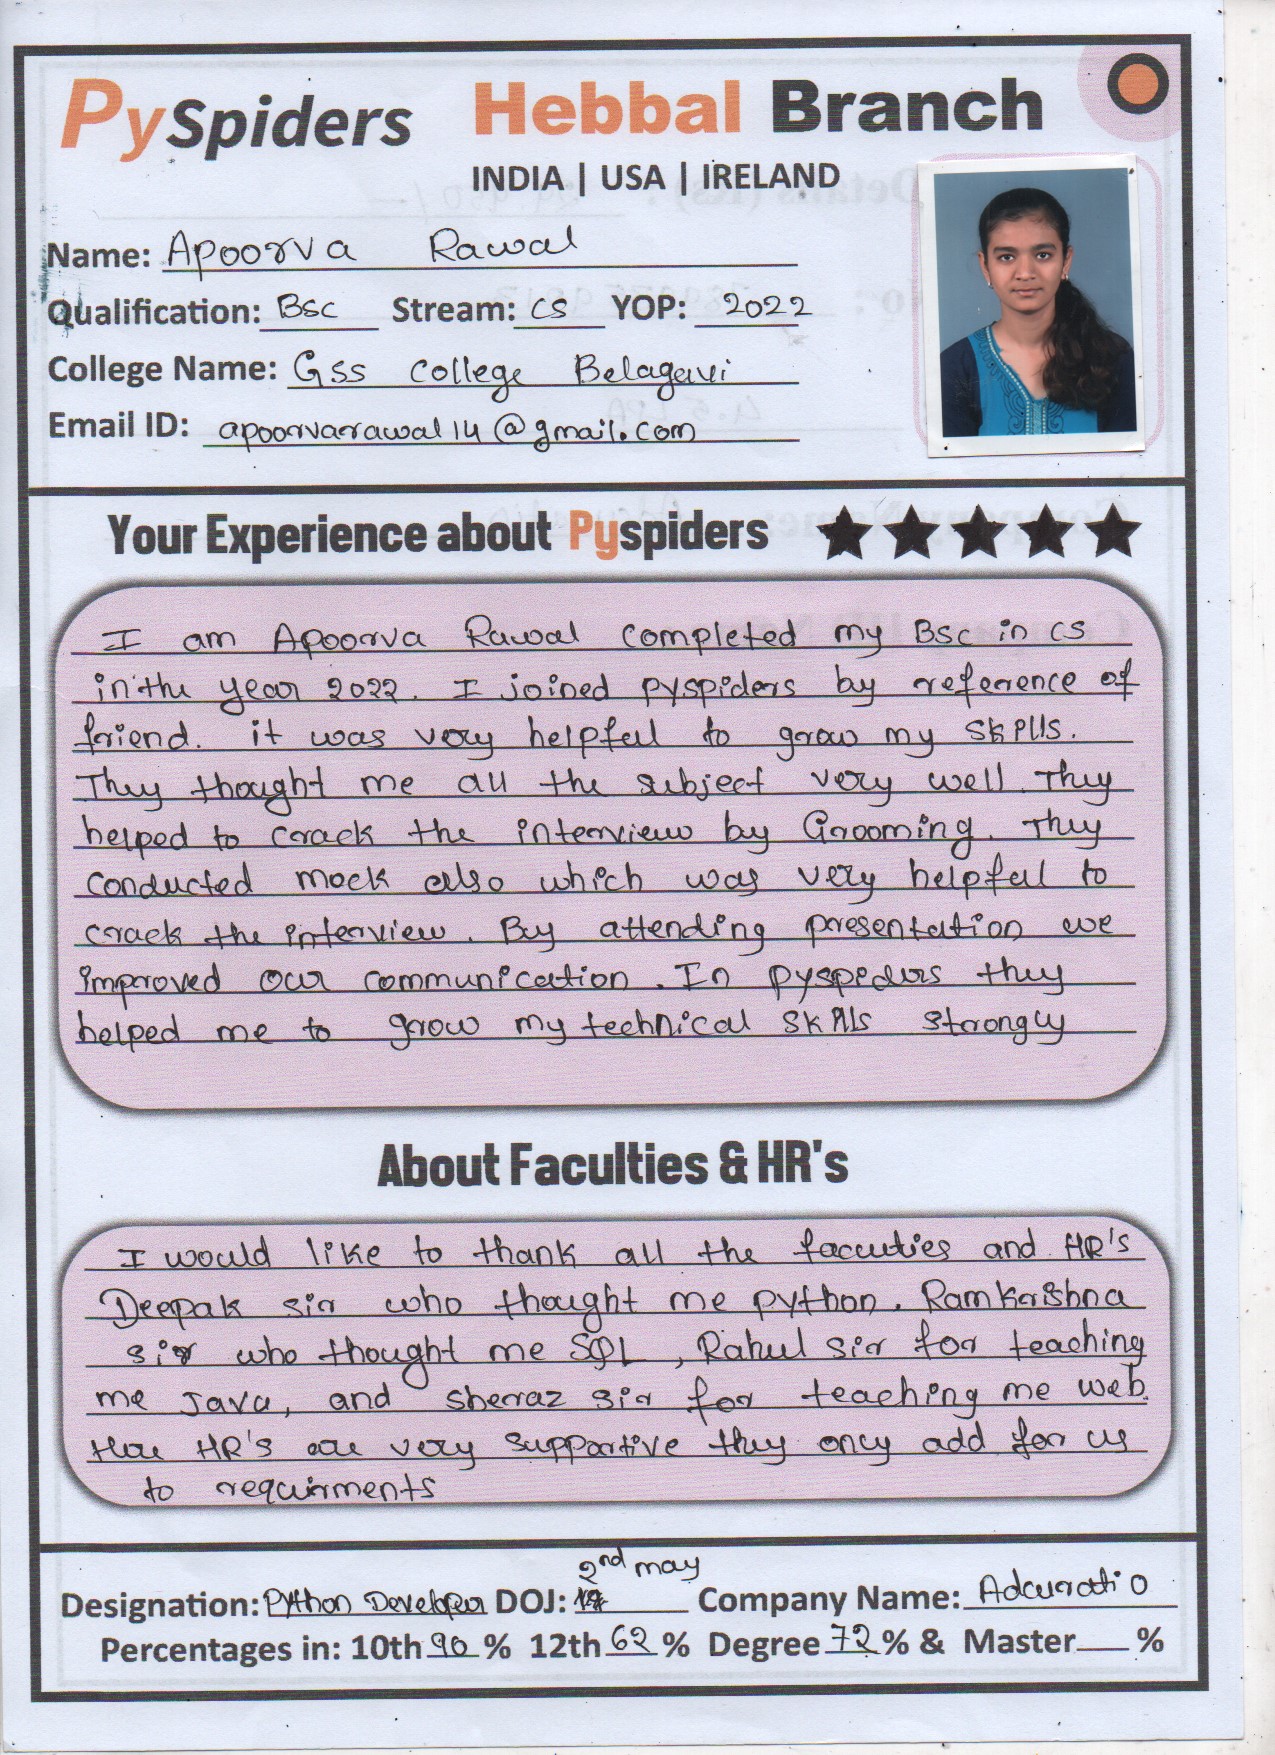 PySpiders Hebbal Branch
INDIA | USA | IRELAND
Name: Apoorva Rawal
Qualification: Bsc Stream: CS YOP: 2022
College Name: Gss college Belagavi
Email ID: apoorvarawal14@gmail.com
Your Experience about Pyspiders
I am Apoorva Rawal completed my Bsc in CS
in the year 2022. I joined pyspiders by reference of
friend. it was very helpful to grow my skills.
They thought me all the subject very well. They
helped to crack the interview by Grooming. They
conducted mock also which was very helpful to
crack the interview. By attending presentation we
improved our communication. In pyspiders they
helped me to grow my technical skills strongly
About Faculties & HR's
I would like to thank all the faccuties and HR's
Deepak sir who thought me python. Ramkrishna
sir who thought me SQL, Rahul sir for teaching
me Java, and sherraz sir for teaching me web.
HR's are very supportive they only add for us
to requirments
2nd may
Designation: Python Developer DOJ: Company Name: Adcuratio
Percentages in: 10th 90 % 12th 62 % Degree 72 % & Master %